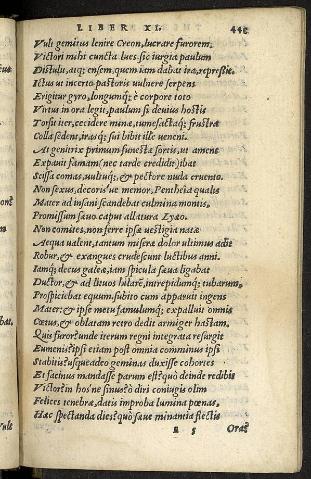 LIBER XI.
Vult gemitus lenire Creon, lucrare furorem,
Victori mihi cuncta lues: sic iurgia paulum
Distulit, atq; ensem, quem iam dabat ira, repressit.
Ictus ut incerto pastoris uulnere serpens
Erigitur gyro, longumq; è corpore toto
Virus in ora legit, paulum si deuius hostis
Torsit iter, cecidere minæ, tumefactaq; frustra
Colla sedent, irasq; sui bibit ille ueneni.
At genitrix primum funesta sortis, ut amens
Expauit famam (nec tarde credidit) ibat
Scissa comas, uultuq;, & pectore nuda cruento.
Non sexus, decorisúe memor, Pentheia qualis
Mater ad insani scandebat culmina montis,
Promissum sæuo caput allatura Lyæo.
Non comites, non ferre ipsæ uestigia natæ
Aequa ualent, tantum miseræ dolor ultimus addit
Robur, & exangues crudescunt luctibus anni.
Iamq; decus galeæ, iam spicula sæua ligabat
Ductor, & ad lituos hilarẽ, intrepidumq; tubarum,
Prospiciebat equum, subito cum apparuit ingens
Mater; & ipse metu famulumq; expalluit omnis
Cœtus, & oblatam retro dedit armiger hastam.
Quis furor? unde iterum regni integrata resurgit
Eumenis? ipsi etiam post omnia comminus ipsi
Stabitis? usqueadeo geminas duxisse cohortes
Et facinus mandasse parum est? quò deinde redibit
Victor? in hos ne sinus? ô diri coniugis olim
Felices tenebræ, datis improba lumina pœnas,
Hæc spectanda dies? quò sæue minantia flectis
Ora?